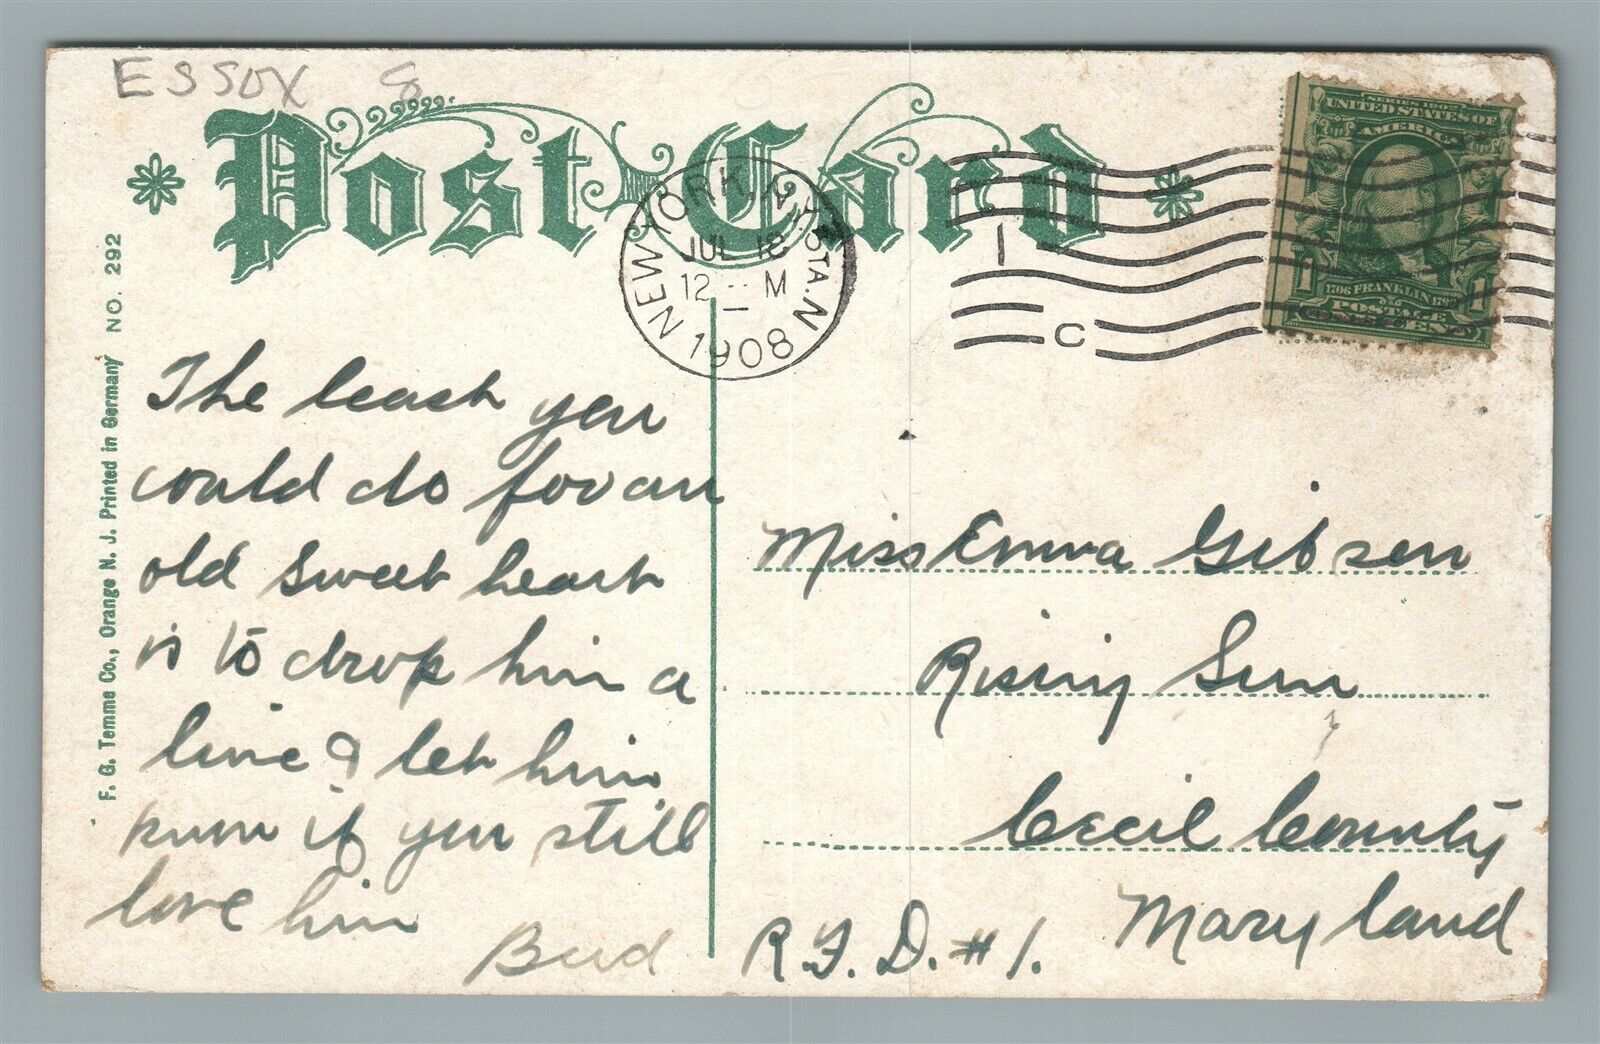 ESSOX 8
Post Card
NEW YORK, N.Y. STA. N
JUL 18
12 M
1908
1
C
SERIES 1902
UNITED STATES OF
AMERICA
1 1706 FRANKLIN 1790 1
POSTAGE
F. G. Temme Co., Orange N. J. Printed in Germany NO. 292
The least you
could do for an
old sweet heart
is to drop him a
line & let him
know if you still
love him
Bud
Miss Emma Gibson
Rising Sun
Cecil County
Maryland
R.F.D. #1.